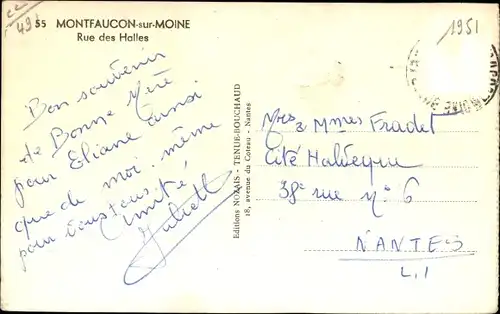 49
55 MONTFAUCON-sur-MOINE
Rue des Halles
1951
Bon souvenir
de Bonne Mère
pour Eliane ainsi
que de moi-même
pour vous tous.
Amitié
Juliette
Editions NOZAIS - TENUE-BOUCHAUD
18, avenue du Coteau - Nantes
Mrs & Mmes Fradet
Cité Halvêque
38e rue n° 6
NANTES
L.I